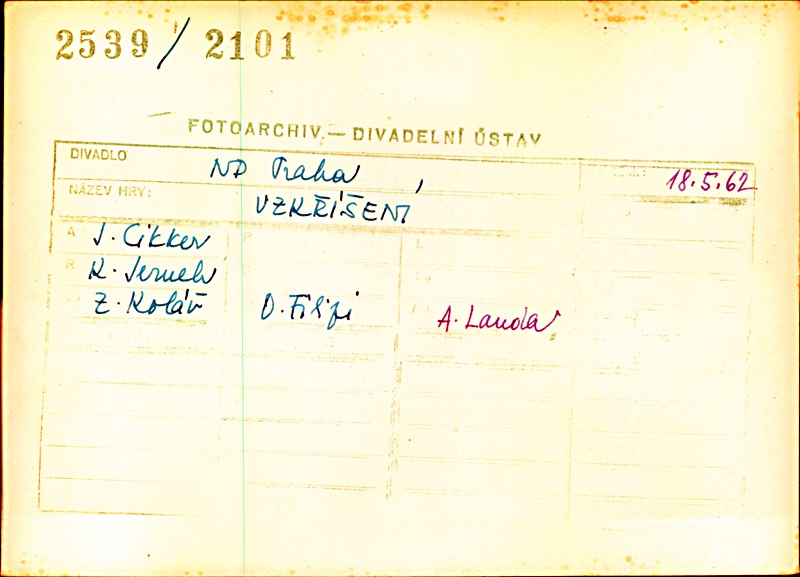 2539/2101
FOTOARCHIV — DIVADELNÍ ÚSTAV
DIVADLO ND Praha, 18.5.62
NÁZEV HRY: VZKŘÍŠENÍ
A J. Cikker P L
R K. Jernek
Z. Kolář O. Filipi A. Landa